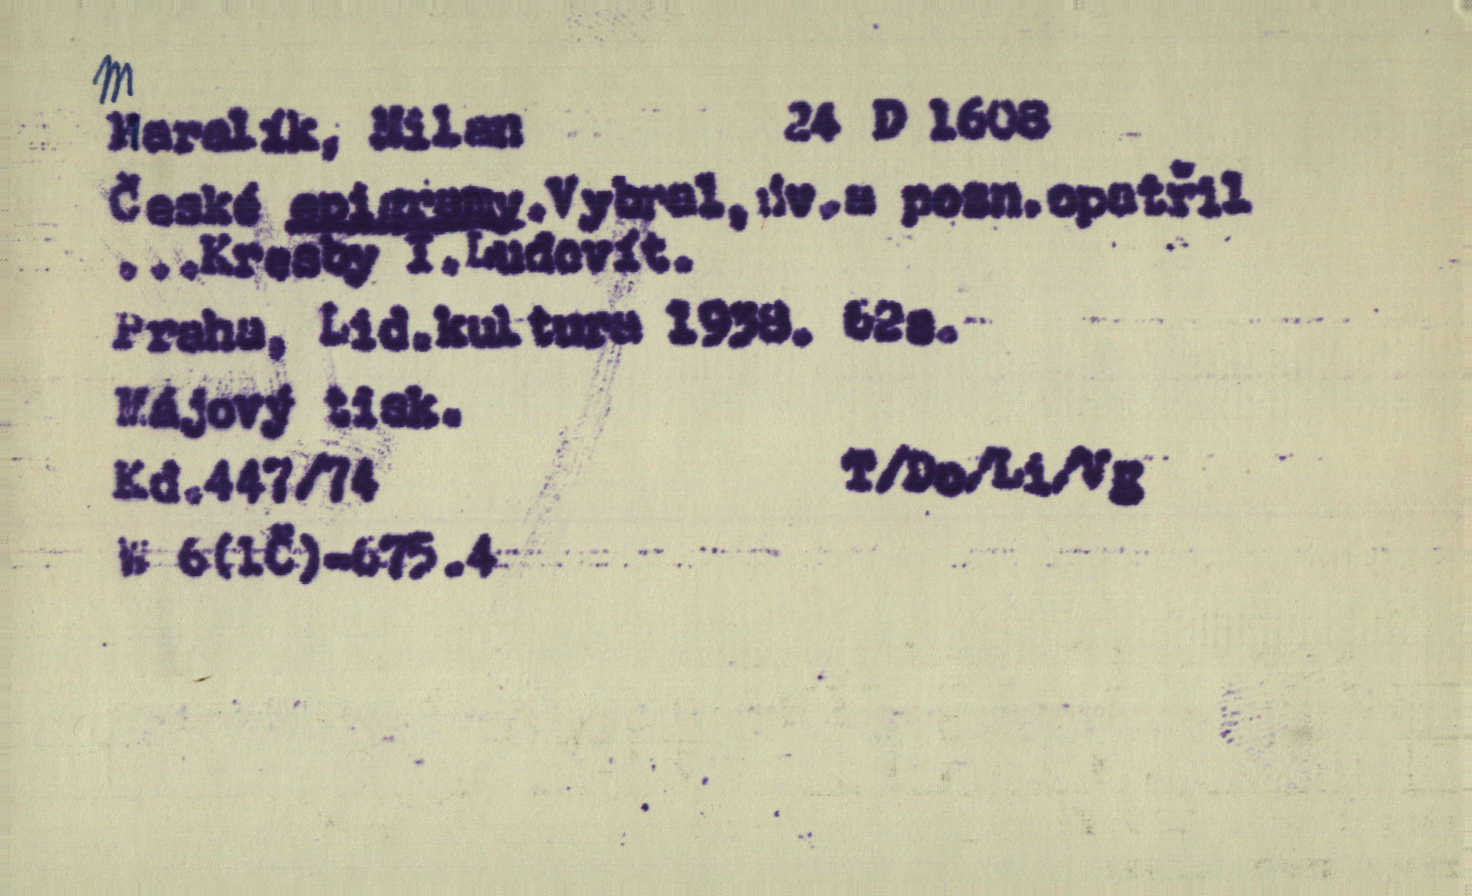 m
Maralík, Milan 24 D 1608
České epigramy.Vybral,úv.a pozn.opatřil
...Kresby T.Ludovít.
Praha, Lid.kultura 1938. 62s.
Májový tisk.
Kd.447/74 T/Do/Li/Vg
W 6(1Č)-675.4